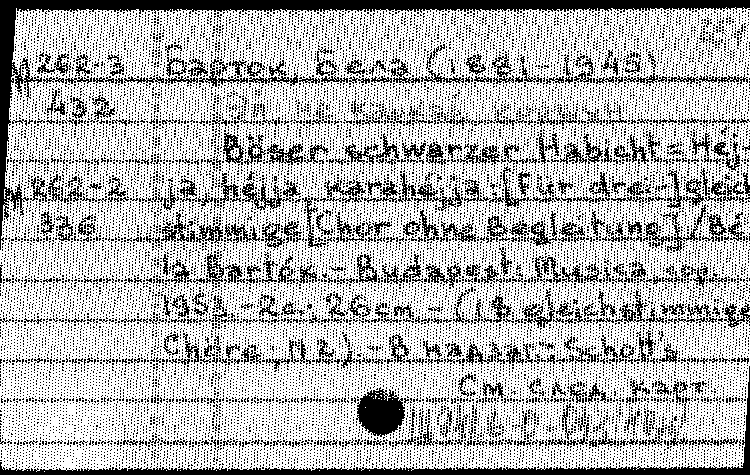 М 262-3 Барток, Бела (1881-1945)
432
Böser schwarzer Habicht = Héj-
М 262-2 ja, héjja, karahéjja: [Für drei-] gleich
336 stimmige [Chor ohne Begleitung] / Bé
la Bartók. - Budapest: Musica, cop.
1953. - 2 с.; 26 cm - (18 gleichstimmige
Chöre; N 2). - В надзаг.: Schott's
См. след. карт